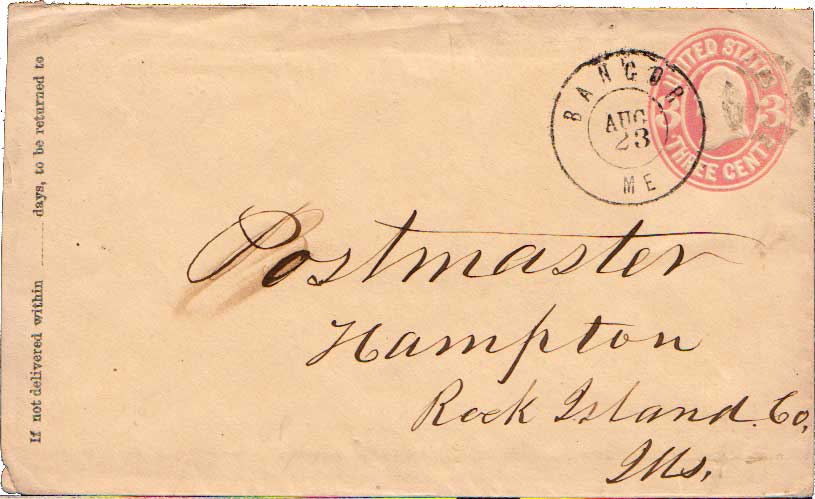 If not delivered within ........ days, to be returned to
BANGOR
AUG
23
ME
UNITED STATES
3 3
THREE CENTS
Postmaster
Hampton
Rock Island Co,
Ills.